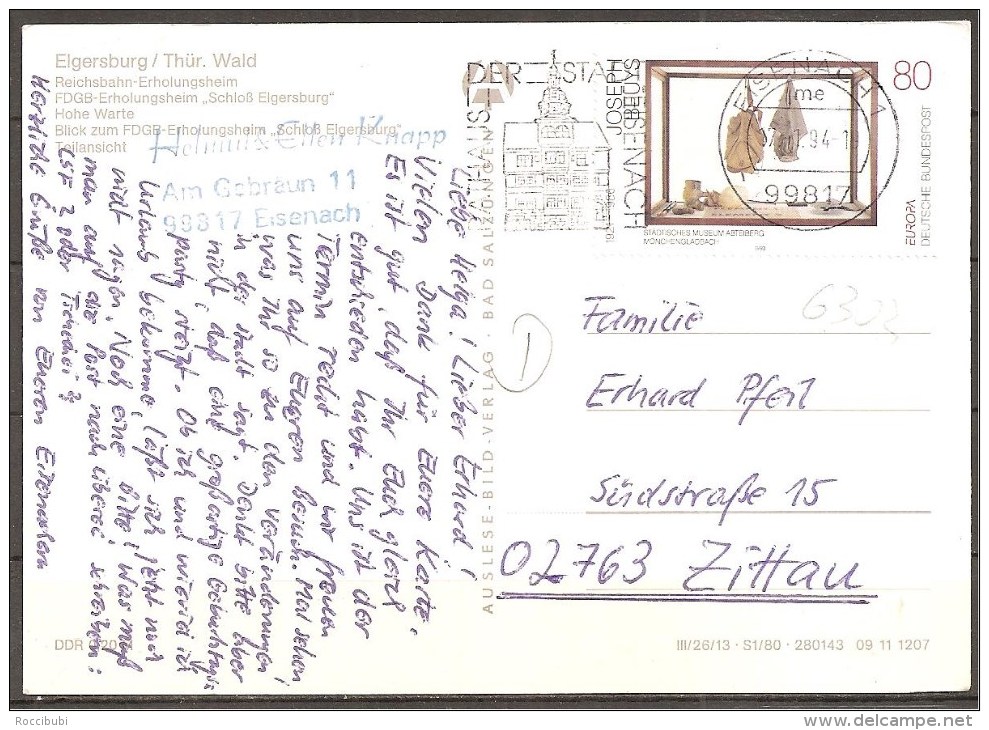 Elgersburg / Thür. Wald
Reichsbahn-Erholungsheim
FDGB-Erholungsheim „Schloß Elgersburg"
Hohe Warte
Blick zum FDGB-Erholungsheim „Schloß Elgersburg"
Teilansicht
Helmut & Ellen Knapp
Am Gebräun 11
99817 Eisenach
Liebe Helga! Lieber Erhard!
Vielen Dank für Euere Karte.
Es ist gut, daß Ihr Euch gleich
entschieden habt. Uns ist der
Termin recht und wir freuen
uns auf Eueren Besuch. Mal sehen
was Ihr so zu den Veränderungen
in der Stadt sagt. Denkt bitte aber
nicht, daß eine großartige Geburtstags-
party steigt. Ob ich und wieviel ich
Urlaub bekomme, läßt sich jetzt noch
nicht sagen. Noch eine Bitte! Was muß
man auf die Post nach Liberec schreiben:
ČSR 2 oder Tschechei ??
Herzliche Grüße von Eueren Eisenachern
AUSLESE-BILD-VERLAG · BAD SALZUNGEN
DER STADT
EISENACH
EISENACH 1
me
94-1
99817
JOSEPH
BEUYS
80
STÄDTISCHES MUSEUM ABTEIBERG
MÖNCHENGLADBACH
1993
EUROPA
DEUTSCHE BUNDESPOST
6302
1
Familie
Erhard Pfeil
Südstraße 15
02763 Zittau
DDR 0,20 M
III/26/13 · S1/80 · 280143 09 11 1207
Roccibubi
delcampe.net